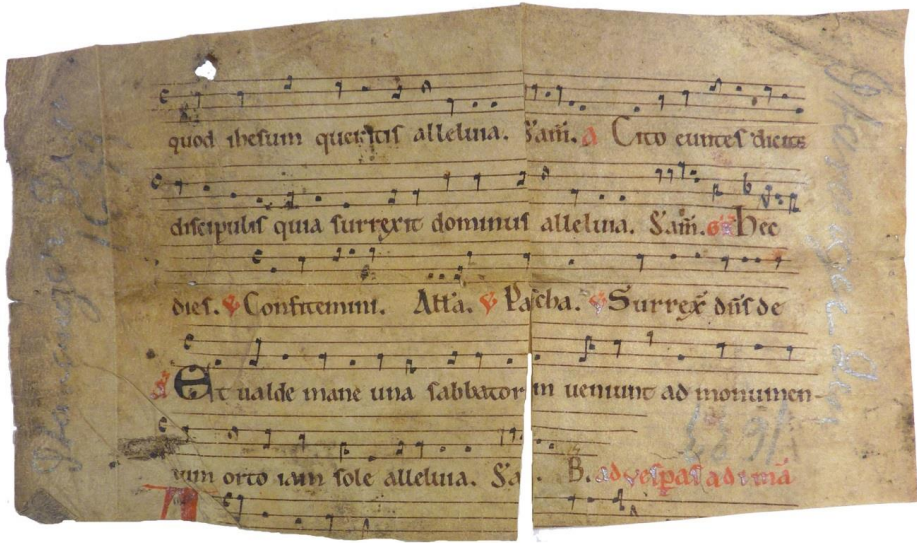 quod ihesum queritis alleluia. S'am̄. a Cito euntes dicite
discipulis quia surrexit dominus alleluia. S'am̄. Hec
dies. v Confitemini. Atta. v Pascha. v Surrex̄ dn̄s de
Et ualde mane una sabbatorum ueniunt ad monumen-
tum orto iam sole alleluia. B. ad uesp̄as ad
1633